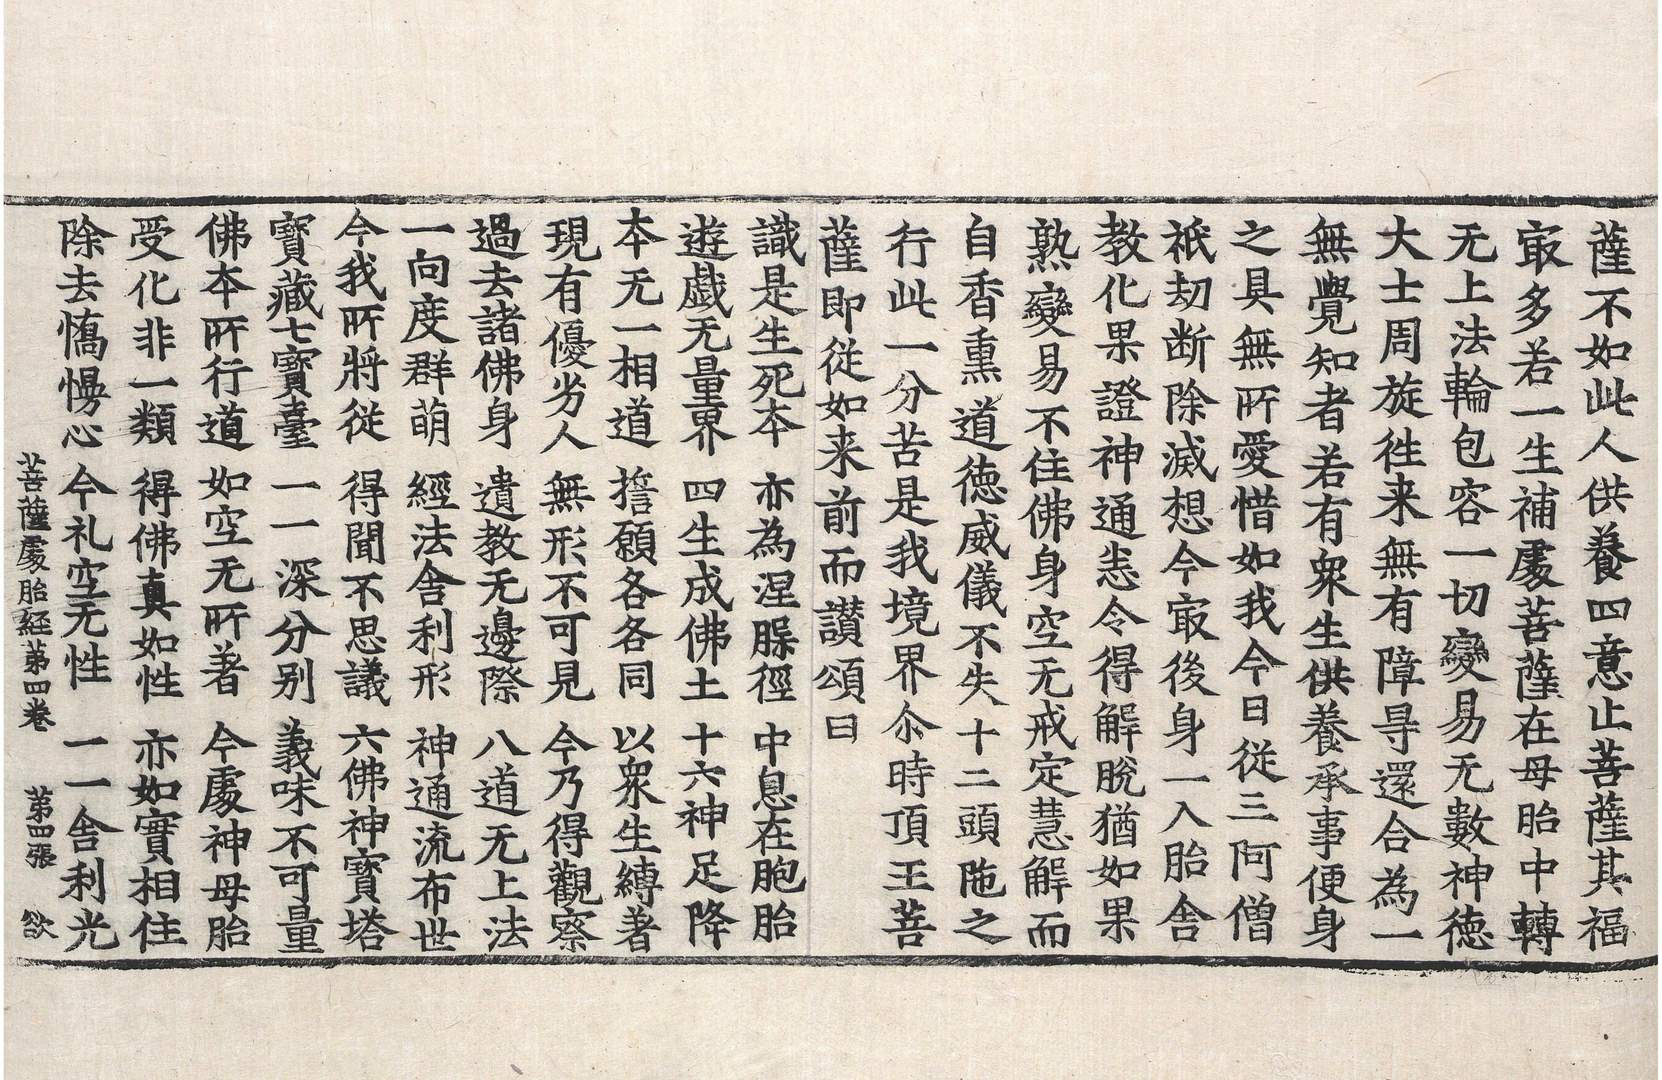 薩不如此人供養四意止菩薩其福
㝡多若一生補䖏菩薩在母胎中轉
无上法輪包容一切變易无數神德
大士周旋往来無有障㝵還合為一
無覺知者若有衆生供養承事便身
之具無所愛惜如我今日從三阿僧
祇劫断除滅想今㝡後身一入胎舎
教化果證神通恚令得解脫猶如果
熟變易不住佛身空无戒定慧解而
自香熏道德威儀不失十二頭陁之
行此一分苦是我境界尒時頂王菩
薩即從如来前而讃頌曰
識是生死本　亦為涅腂徑　中息在胞胎
遊戯无量界　四生成佛土　十六神足降
本无一相道　擔願各各同　以衆生縛著
現有優劣人　無形不可見　今乃得觀察
過去諸佛身　遺教无邊際　八道无上法
一向度群萌　經法舎利形　神通流布世
今我所將從　得聞不思議　六佛神寳塔
寳藏七寳臺　一一深分别　義味不可量
佛本所行道　如空无所著　今䖏神母胎
受化非一類　得佛真如性　亦如實相住
除去憍慢心　今礼空无性　一一舎利光
菩薩䖏胎経第四卷　第四張　欲